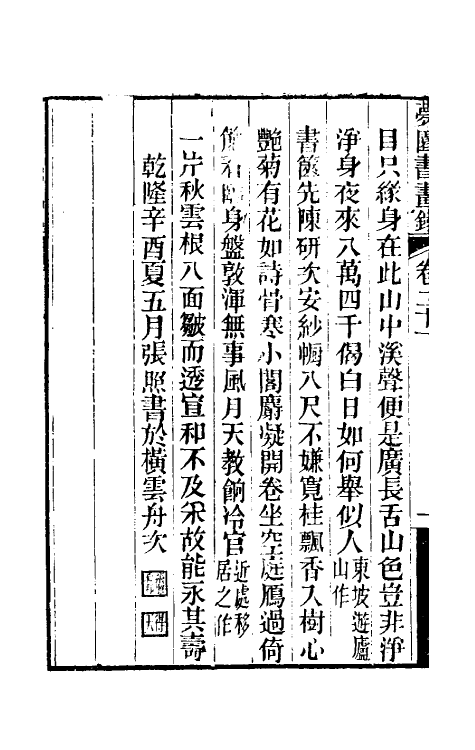 夢園書畫錄
卷二十一
目只緣身在此山中溪聲便是廣長舌山色豈非淨
淨身夜來八萬四千偈白日如何舉似人東坡遊廬山作
書篋先陳研次安紗幮八尺不嫌寬桂飄香入樹心
艷菊有花如詩骨寒小閣麝凝開卷坐空庭鴈過倚
身盤敦渾無事風月天教餉冷官近處移居之作
一片秋雲根八面皺而透宣和不及采故能永其壽
乾隆辛酉夏五月張照書於橫雲舟次